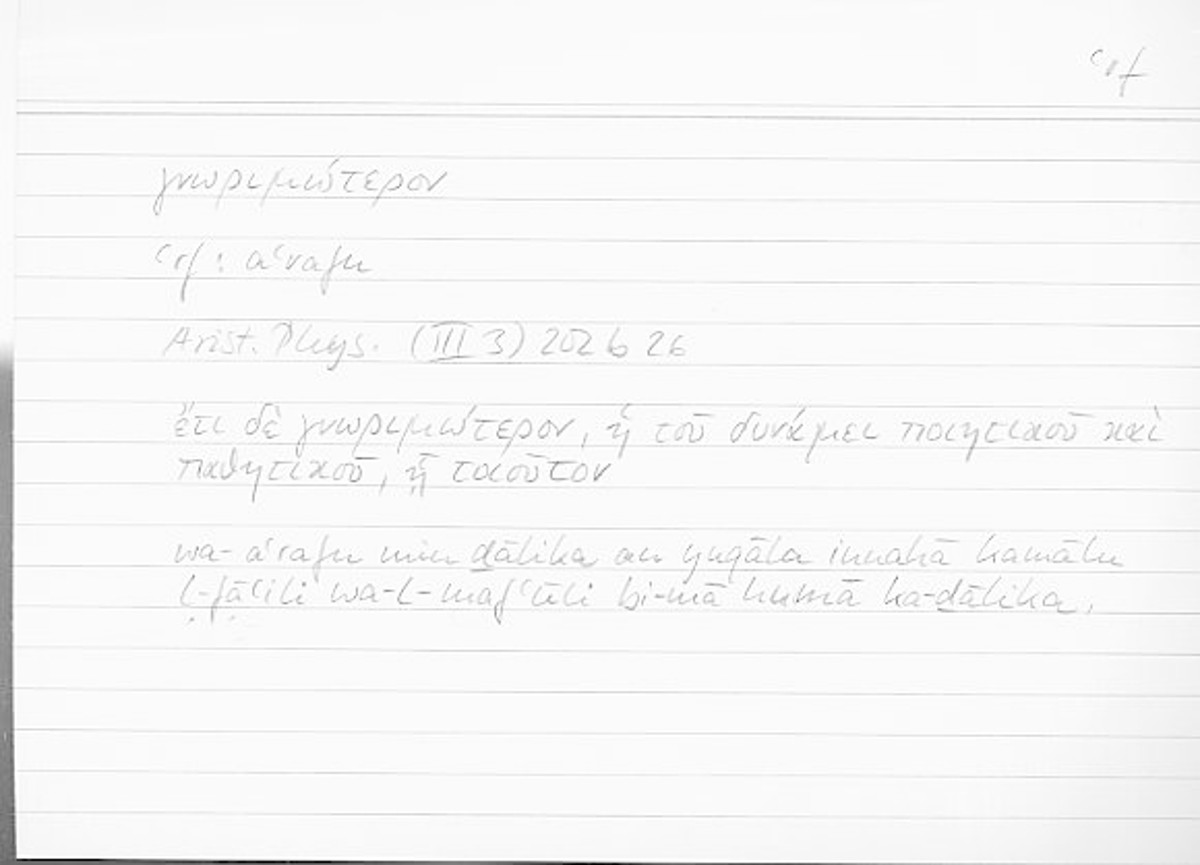 ʿrf
γνωριμώτερον
ʿrf: aʿrafu
Arist. Phys. (III 3) 202 b 26
ἔτι δὲ γνωριμώτερον, ἡ τοῦ δυνάμει ποιητικοῦ καὶ
παθητικοῦ, ᾗ τοιοῦτον
wa-aʿrafu min ḏālika an yuqāla innahā kamālu
l-fāʿili wa-l-mafʿūli bi-mā humā ka-ḏālika.